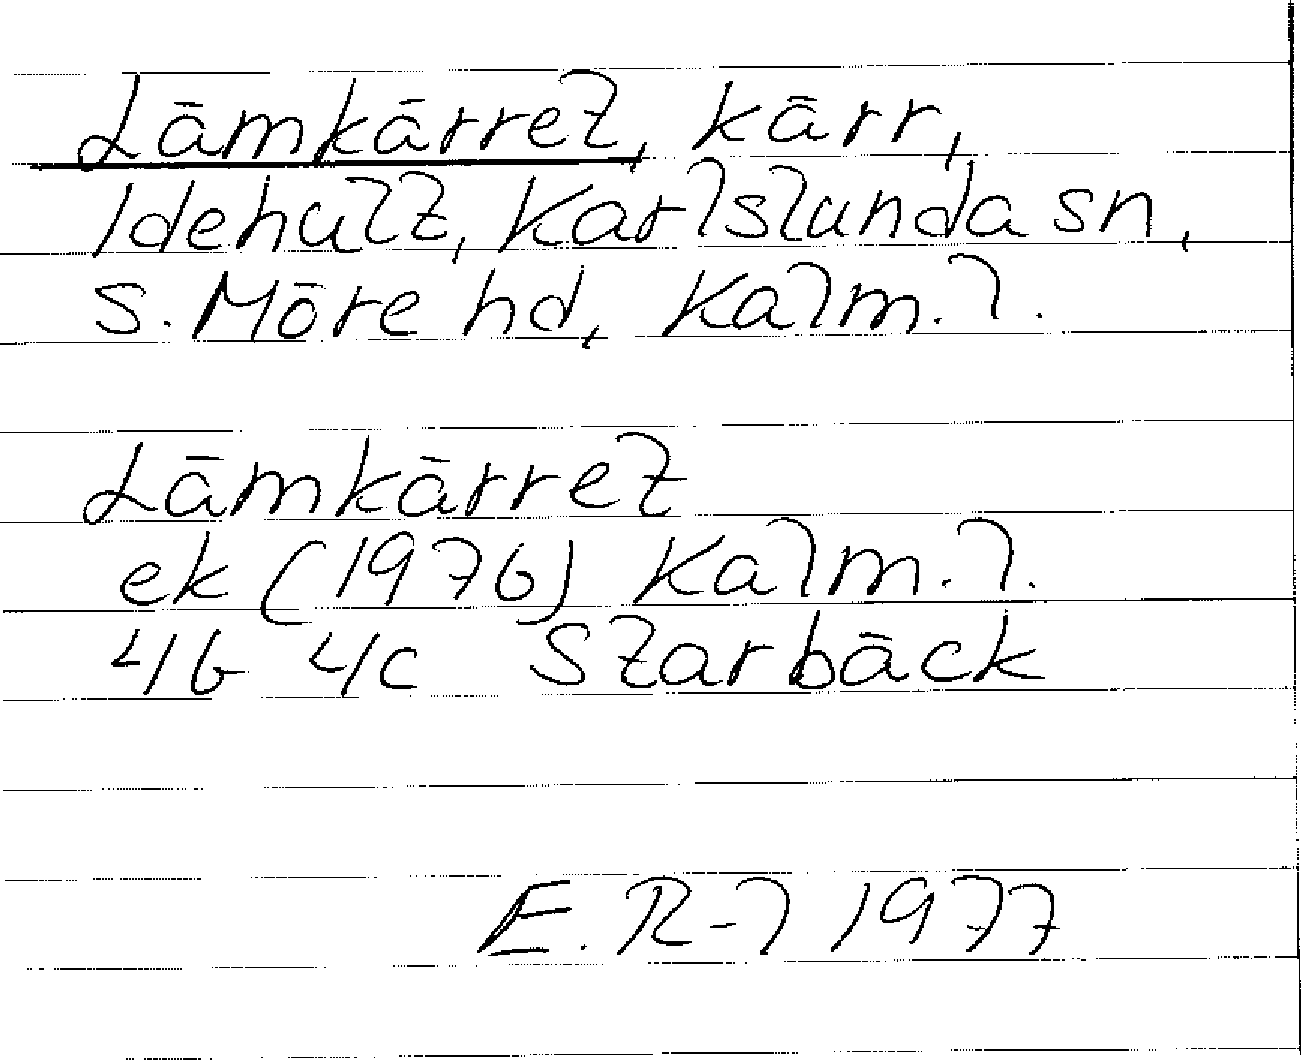 Lämkärret, kärr,
Idehult, Karlslunda sn,
S. Möre hd, Kalm. l.
Lämkärret
ek (1976) Kalm. l.
4G 4c Starbäck
E. R-l 1977